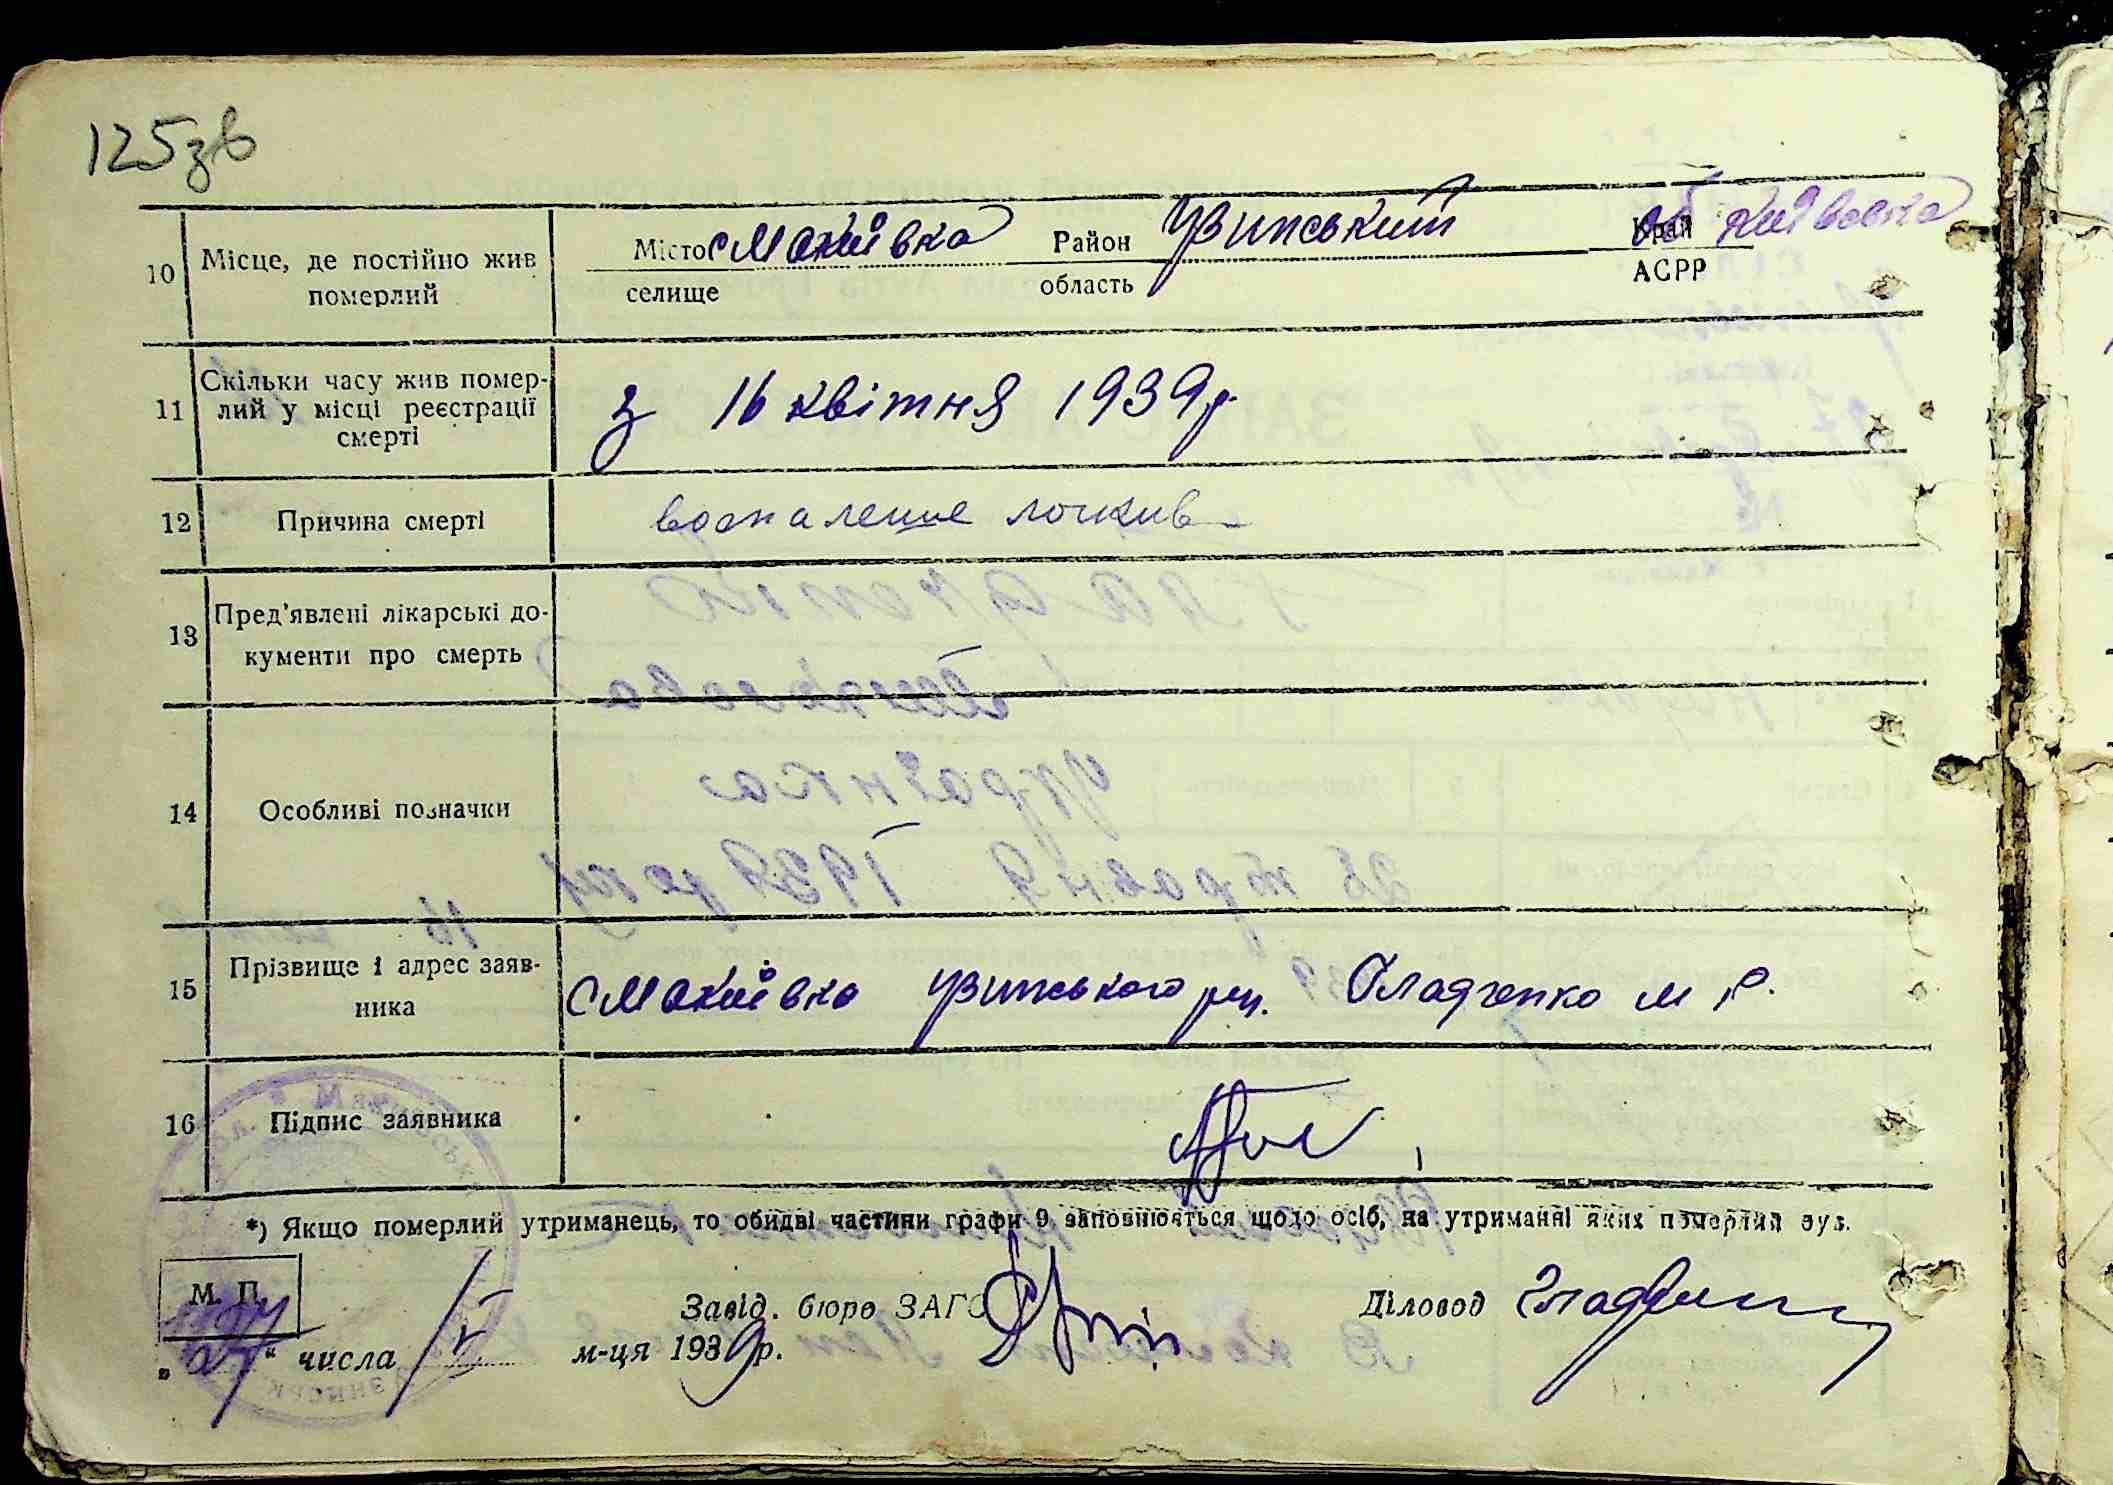 125зв
10 Місце, де постійно жив померлий
Місто с Макиївка Район Край об Київська
селище область АСРР
11 Скільки часу жив помер-
лий у місці реєстрації
смерті
з 16 квітня 1939 р.
12 Причина смерті воспаление
13 Пред'явлені лікарські до-
кументи про смерть
14 Особливі позначки
15 Прізвище і адрес заяв-
ника
с Макиївка
16 Підпис заявника
*) Якщо померлий утриманець, то обидві частини графи 9 заповнюються щодо осіб, на утриманні яких померлий був.
М. П.
Завід. бюро ЗАГС Діловод
„27“ числа V м-ця 1939 р.